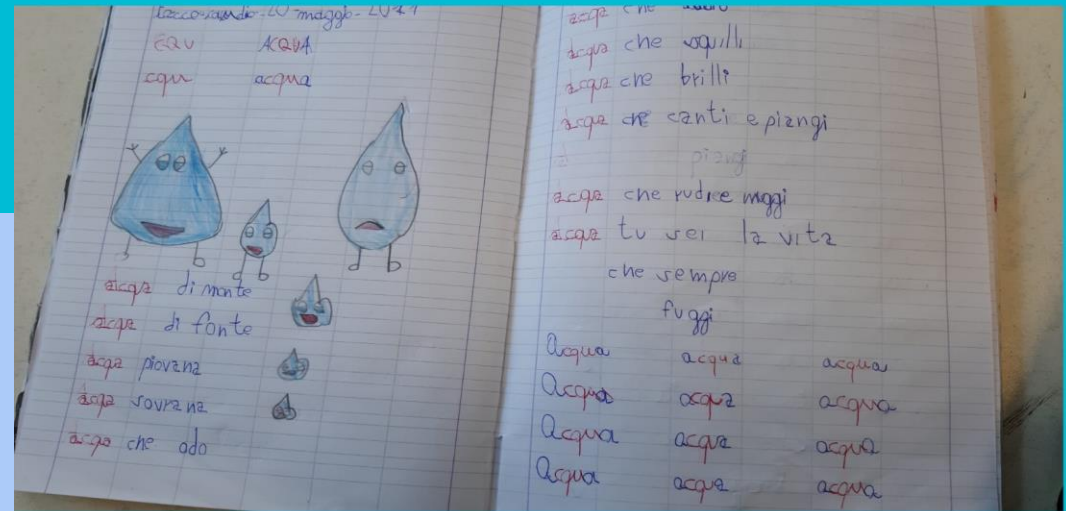 20 maggio-2021
CQU ACQUA
cqu acqua
acqa di monte
acqa di fonte
acqa piovana
acqa sovrana
acqa che odo
acqa che
acqua che squilli
acqa che brilli
acqa che canti e piangi
piangi
acqa che rudice muggi
acqa tu sei la vita
che sempre
fuggi
Acqua acqua acqua
Acqua acqua acqua
Acqua acqua acqua
Acqua acqua acqua